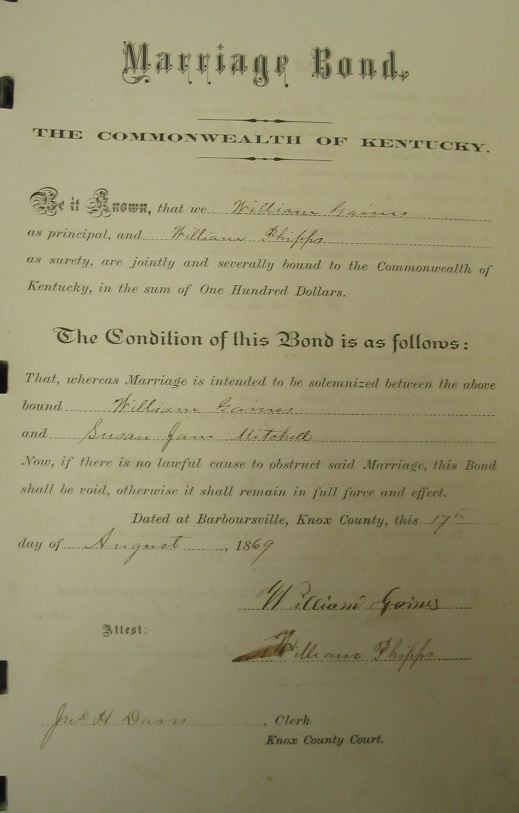 Marriage Bond.
THE COMMONWEALTH OF KENTUCKY.
Be it Known, that we William Gaines
as principal, and William Phipps
as surety, are jointly and severally bound to the Commonwealth of
Kentucky, in the sum of One Hundred Dollars.
The Condition of this Bond is as follows:
That, whereas Marriage is intended to be solemnized between the above
bound William Gaines
and Susan Jane Mitchell
Now, if there is no lawful cause to obstruct said Marriage, this Bond
shall be void, otherwise it shall remain in full force and effect.
Dated at Barboursville, Knox County, this 17th
day of August, 1869
William Goines
Attest:
William Phipps
Jno H Davis, Clerk
Knox County Court.